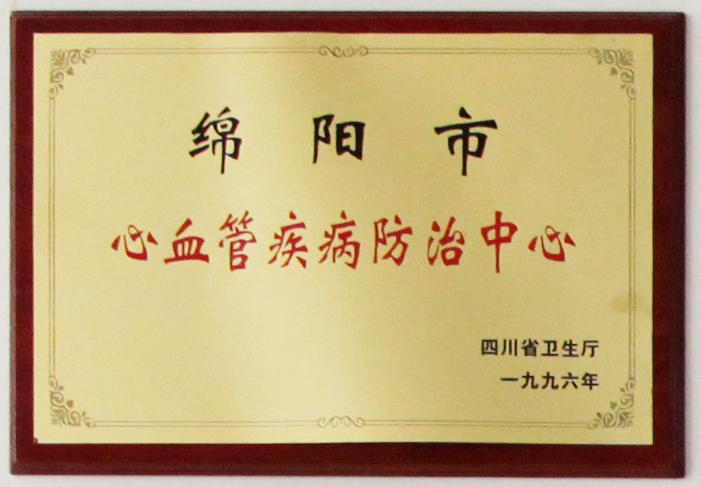 绵阳市
心血管疾病防治中心
四川省卫生厅
一九九六年